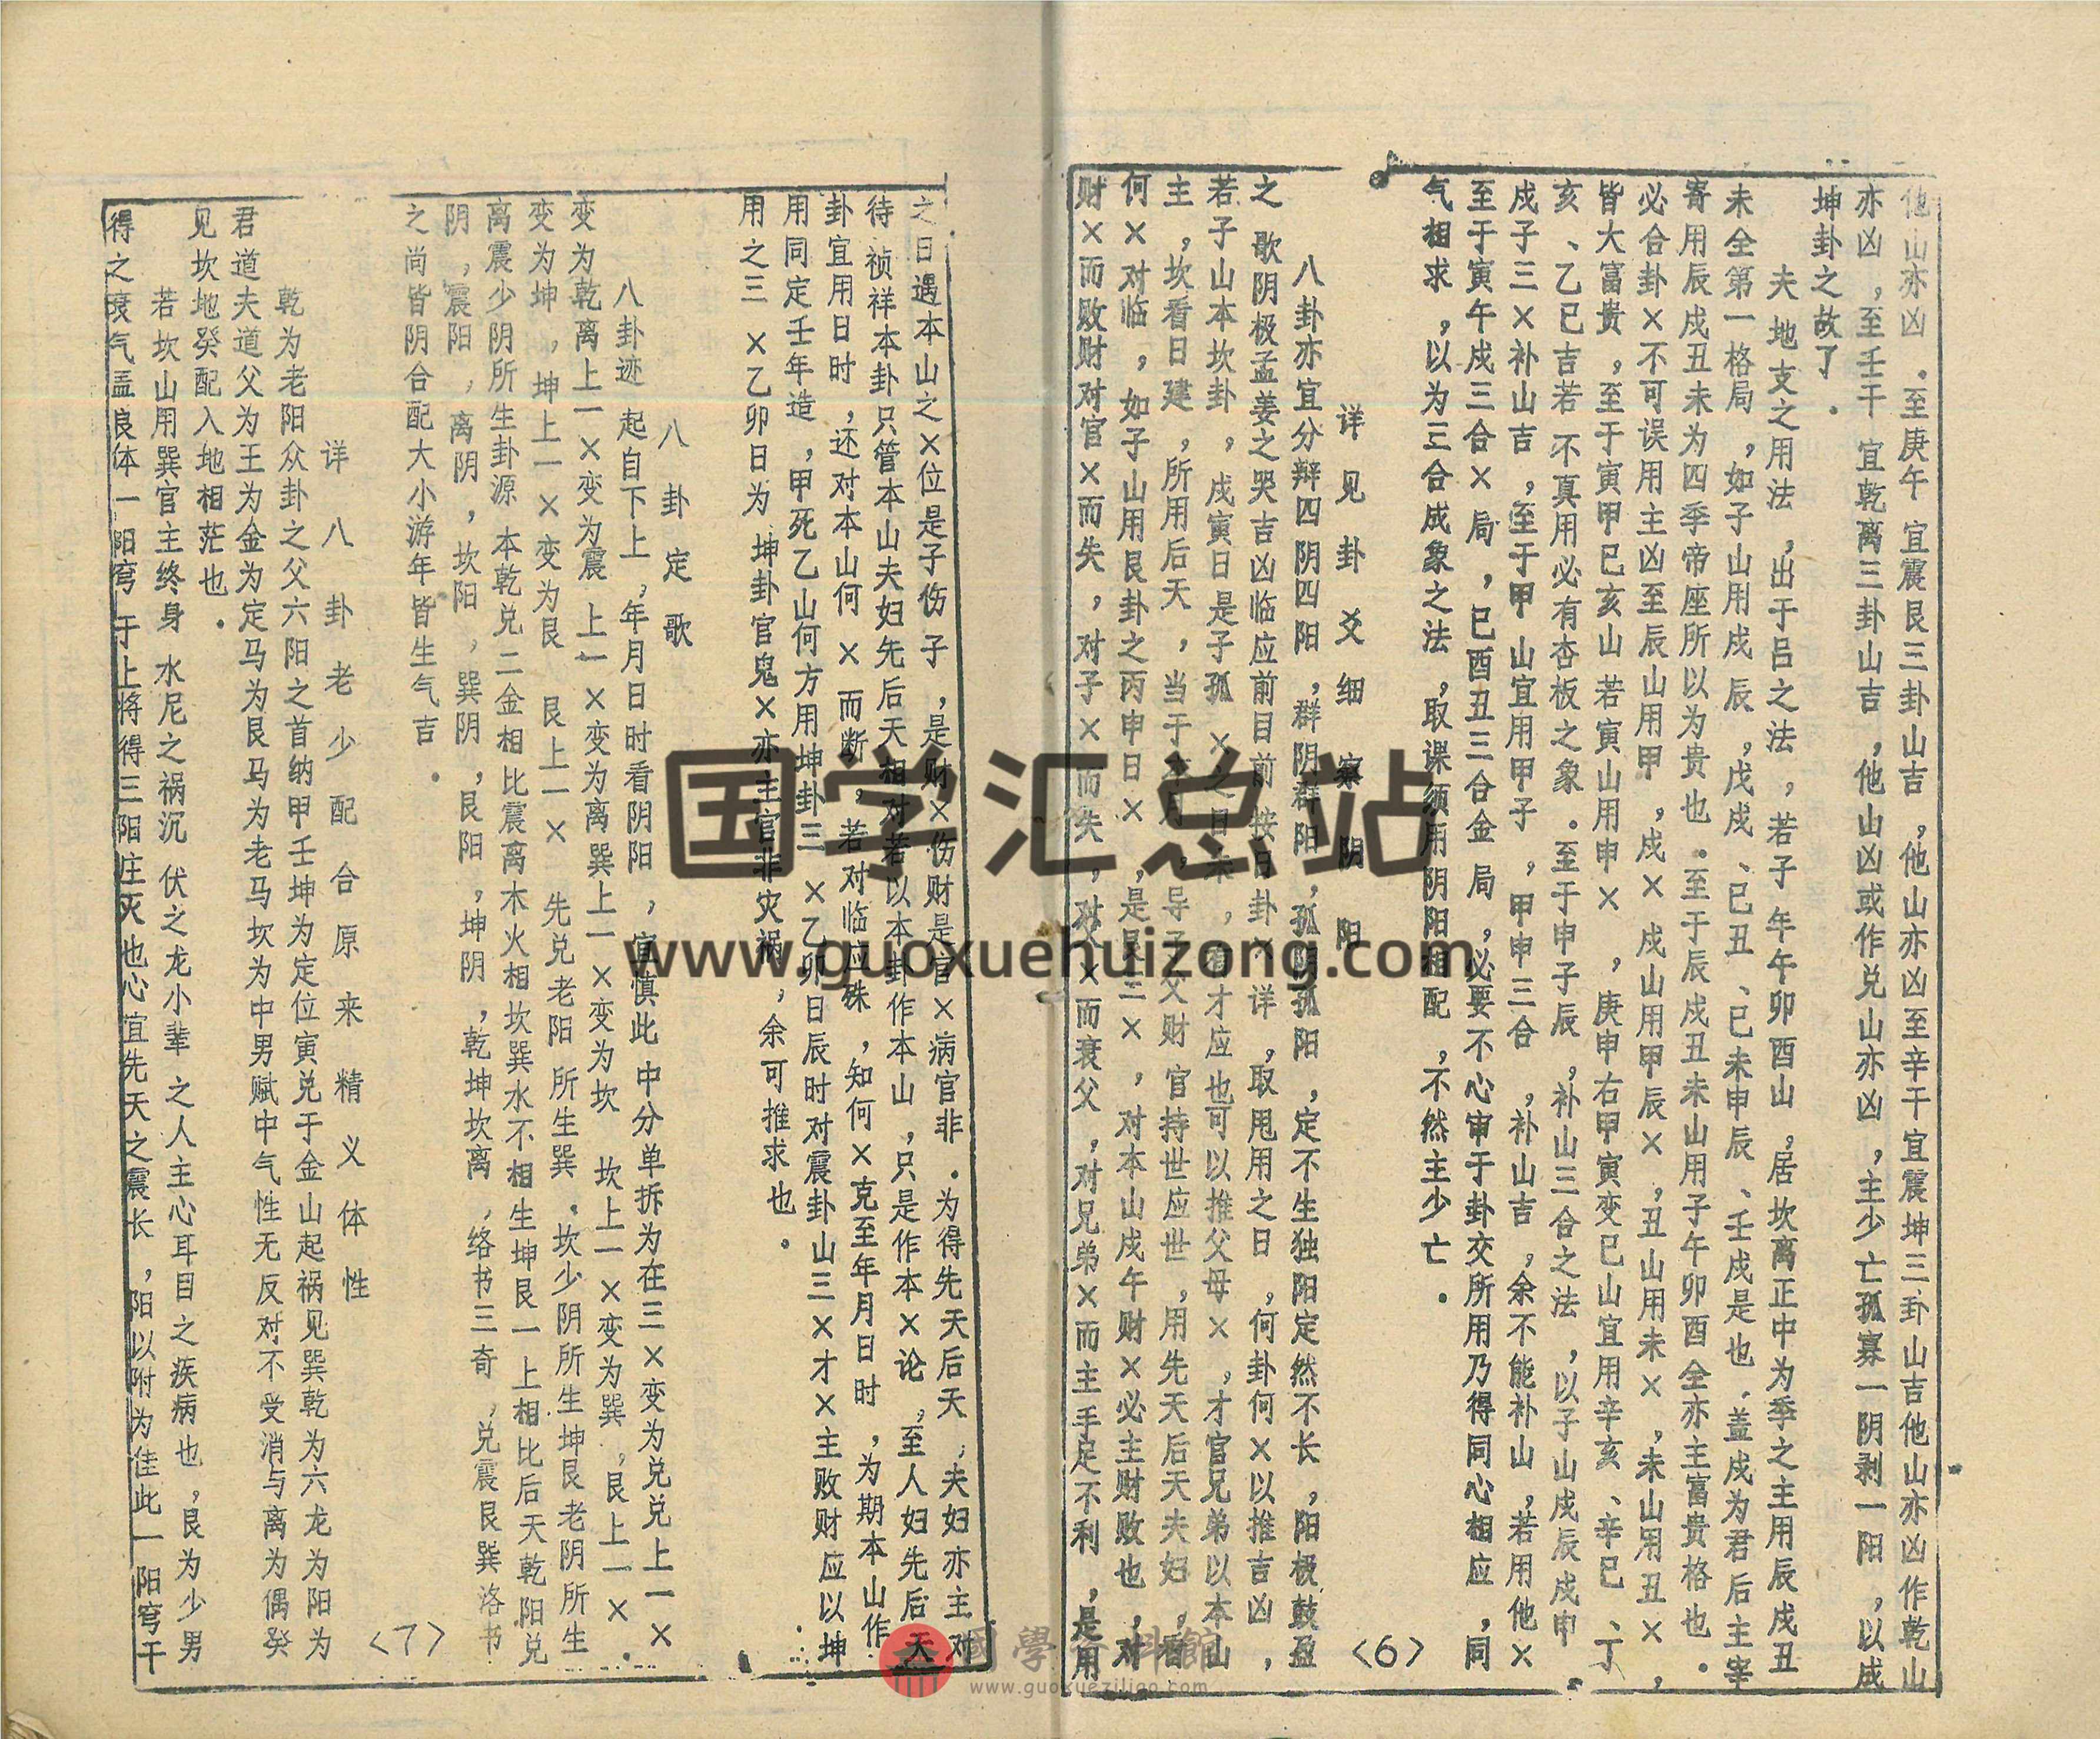 他山亦凶．至庚午宜震艮三卦山吉，他山亦凶至辛干宜震坤三卦山吉他山亦凶作乾山
亦凶，至壬干宜乾离三卦山吉，他山凶或作兑山亦凶，主少亡孤寡一阴剥一阳，以成
坤卦之故了．
夫地支之用法，出于吕之法，若子年午卯酉山，居坎离正中为季之主用辰戌丑
未全第一格局，如子山用戌辰、戊戌、已丑、已未申辰、壬戌是也．盖戌为君后主宰
寄用辰戌丑未为四季帝座所以为贵也．至于辰戌丑未山用子午卯酉全亦主富贵格也．
必合卦×不可误用主凶至辰山用甲，戌×戌山用甲辰×，丑山用未×，未山用丑×，
皆大富贵，至于寅甲巳亥山若寅山用申×，庚申右甲寅变巳山宜用辛亥、辛巳、丁
亥、乙巳吉若不真用必有杏板之象．至于申子辰，补山三合之法，以子山戌辰戌申
戌子三×补山吉，至于甲山宜用甲子，甲申三合，补山吉，余不能补山，若用他×
至于寅午戌三合×局，巳酉丑三合金局，必要不心审于卦交所用乃得同心相应，同
气相求，以为三合成象之法，取课须用阴阳相配，不然主少亡．
详见卦爻细察阴阳
八卦亦宜分辩四阴四阳，群阴群阳，孤阴孤阳，定不生独阳定然不长，阳极鼓盈
之歌阴极孟姜之哭吉凶临应前目前按日卦×详，取甩用之日，何卦何×以推吉凶，
若子山本坎卦，戌寅日是子孤×之日未，有才应也可以推父母×，才官兄弟以本山
主，坎看日建，所用后天，当于本月，导子父财官持世应世，用先天后天夫妇，看
何×对临，如子山用艮卦之丙申日×，是艮三×，对本山戌午财×必主财败也，对
财×而败财对官×而失，对子×而失，对父×而衰父，对兄弟×而主手足不利，是用
<6>
之日遇本山之×位是子伤子，是财×伤财是官×病官非．为得先天后天，夫妇亦主对
待祯祥本卦只管本山夫妇先后天相对若以本卦作本山，只是作本×论，至人妇先后天
卦宜用日时，还对本山何×而断，若对临应殊，知何×克至年月日时，为期本山作
用同定壬年造，甲死乙山何方用坤卦三×乙卯日辰时对震卦山三×才×主败财应以坤
用之三×乙卯日为坤卦官鬼×亦主官非灾祸，余可推求也．
八卦定歌
八卦迹起自下上，年月日时看阴阳，宜慎此中分单拆为在三×变为兑兑上一×
变为乾离上一×变为震上一×变为离巽上一×变为坎坎上一×变为巽，艮上一×．
变为坤，坤上一×变为艮艮上一×先兑老阳所生巽．坎少阴所生坤艮老阴所生
离震少阴所生卦源本乾兑二金相比震离木火相坎巽水不相生坤艮一上相比后天乾阳兑
阴，震阳，离阴，坎阳，巽阴，艮阳，坤阴，乾坤坎离，络书三奇，兑震艮巽洛书
之尚皆阴合配大小游年皆生气吉．
详八卦老少配合原来精义体性
乾为老阳众卦之父六阳之首纳甲壬坤为定位寅兑于金山起祸见巽乾为六龙为阳为
君道夫道父为王为金为定马为艮马为老马坎为中男赋中气性无反对不受消与离为偶癸
见坎地癸配入地相茫也．
若坎山用巽官主终身水尼之祸沉伏之龙小辈之人主心耳目之疾病也，艮为少男
得之衰气盖良体一阳穹于上将得三阳庄灭也心宜先天之震长，阳以附为佳此一阳穹干
<7>
国学汇总站
www.guoxuehuizong.com
www.guoxueziliao.com